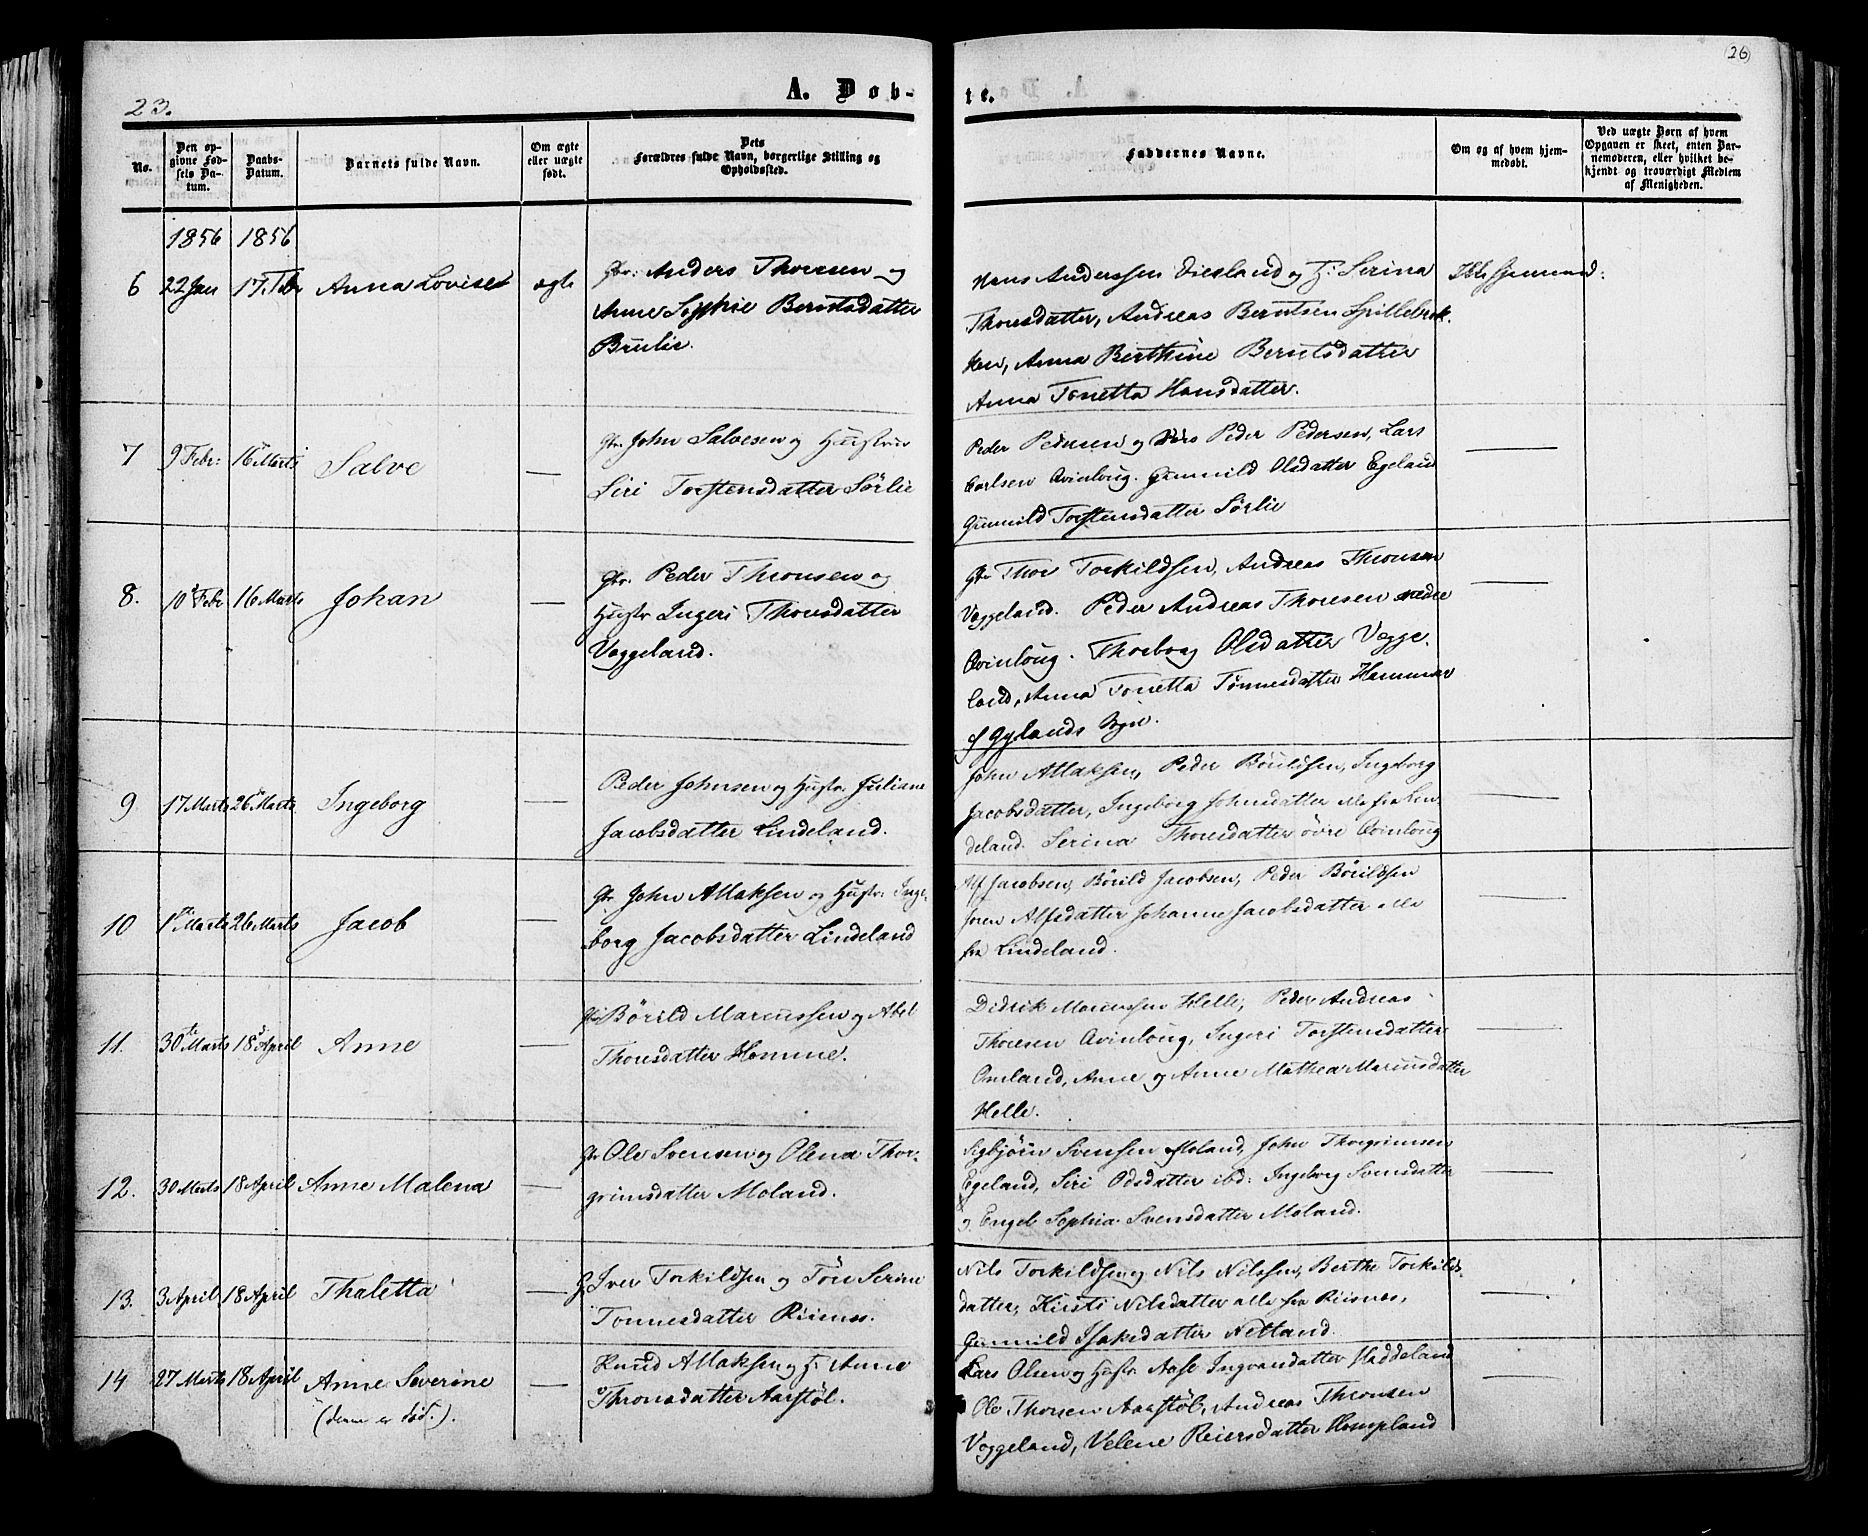 23.
(26)
A. Døb-
te.
No.
Den op-
givne Fød-
sels Da-
tum.
Daabs-
Datum.
Barnets fulde Navn.
Om ægte
eller uægte
født.
Dets
Forældres fulde Navn, borgerlige Stilling og
Opholdssted.
Faddernes Navne.
Om og af hvem hjem-
medøbt.
Ved uægte Børn af hvem
Opgaven er skeet, enten Bar-
nemoderen, eller hvilket be-
kjendt og troværdigt Medlem
af Menigheden.
1856 1856
6 22 Jan 17 Feb Anna Lovise ægte
Gbr: Anders Thorsen og
Anne Sophie Berntsdatter
Brulie.
Hans Anderssen Eiesland og H: Serina
Thorsdatter, Andreas Berntsen Spillebrok-
ken, Anna Berthine Berntsdatter
Anna Tonetta Hansdatter.
7 9 Febr: 16 Marts Salve —
Gbr. John Salvesen og Hustrue
Siri Torstensdatter Sörlie
Peder Pedersen og Peder Pedersen, Lars
Carlsen Qvinloug. Gunnild Olsdatter Egeland
Gunnild Torstensdatter Sörlie
—
8. 10 Febr 16 Marts Johan —
Gbr. Peder Thronsen og
Hustr Ingeri Thorsdatter
Voggeland.
Gbr Thor Torkildsen, Andreas Thronsen
Voggeland. Peder Andreas Thorsen nedre
Qvinloug. Thorborg Olsdatter Vogge-
land, Anna Tonetta Tönnesdatter Hammer
f Gylands Sogn.
—
9. 17 Marts 26 Marts Ingeborg —
Peder Johnsen og Hustr. Juliane
Jacobsdatter Lindeland.
John Atlaksen, Peder Börildsen, Ingeborg
Jacobsdatter, Ingeborg Johnsdatter alle fra Lin-
deland. Serina Thorsdatter övre Qvinloug
—
10 1ste Marts 26 Marts Jacob —
Gbr. John Atlaksen og Hustr. Inge-
borg Jacobsdatter Lindeland
Alf Jacobsen, Börild Jacobsen, Peder Börildsen
Joren Alfsdatter Johanne Jacobsdatter alle
fra Lindeland.
—
11. 30te Marts 18 April Anne —
Gbr Börild Marcussen og Abel
Thorsdatter Homme.
Didrik Marcussen Helle, Peder Andreas
Thorsen Qvinloug, Ingeri Torstensdatter
Omland, Anne og Anne Mathea Marcusdatter
Helle.
—
12. 30 Marts 18 April Anne Malena —
Gbr Ole Svensen og Olena Thor-
grimsdatter Moland.
Sigbjörn Svensen Moland, John Thorgrimsen
Egeland, Siri Odsdatter ibd: Ingeborg Svensdatter
og Engel Sophia Svensdatter Moland.
—
13. 3 April 18 April Thaletta —
G. Iver Torkildsen og Tön Serine
Tonnesdatter Risenes.
Nils Torkildsen og Nils Nilssen, Berthe Torkilds-
datter, Kirsti Nilsdatter alle fra Risnes,
Gunnild Isaksdatter Netland.
—
14 27 Marts 18 April Anne Severine —
(denne er död.).
Knud Atlaksen og H. Anne
Thronsdatter Aarstöl.
Lars Olsen og Hustr. Aase Ingvansdatter Haddeland
Ole Thorsen Aarstöl, Andreas Thronsen
Voggeland, Velene Reiersdatter Hompland
—